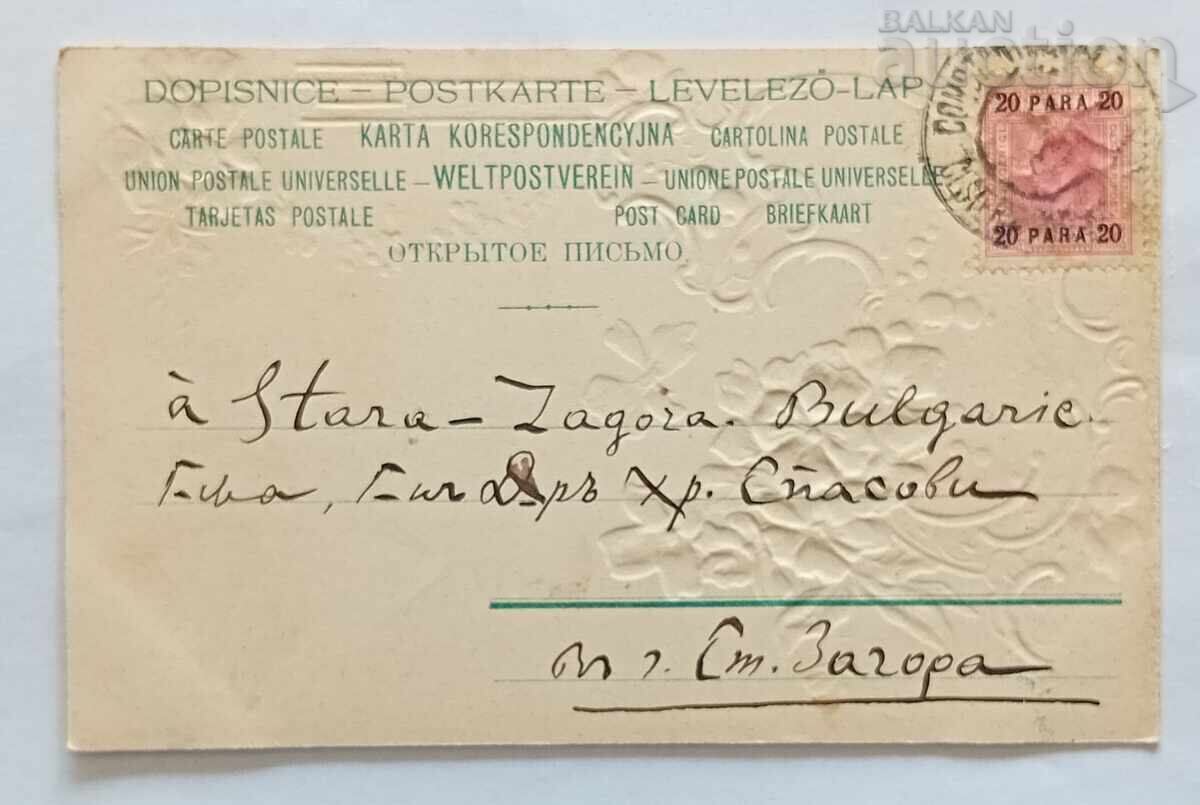 BALKAN
auction
DOPISNICE – POSTKARTE – LEVELEZŐ-LAP
CARTE POSTALE KARTA KORESPONDENCYJNA CARTOLINA POSTALE
UNION POSTALE UNIVERSELLE – WELTPOSTVEREIN – UNIONE POSTALE UNIVERSELLE
TARJETAS POSTALE POST CARD BRIEFKAART
ОТКРЫТОЕ ПИСЬМО
20 PARA 20
20 PARA 20
à Stara – Zagora. Bulgarie
Хр. Спасови
г. Ст. Загора